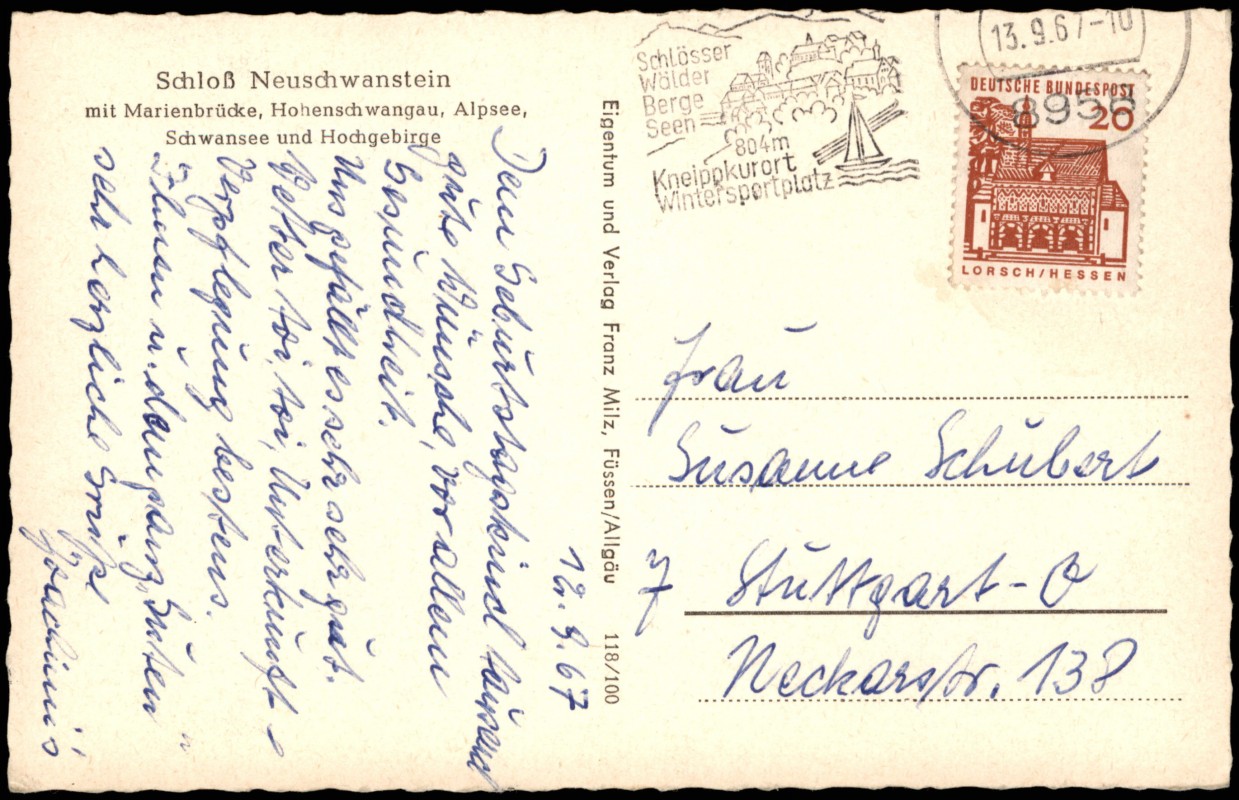 Schloß Neuschwanstein
mit Marienbrücke, Hohenschwangau, Alpsee,
Schwansee und Hochgebirge
12. 9. 67
Dem Geburtstagskind tausend
gute Wünsche, vor allem
Gesundheit.
Uns gefällt es sehr sehr gut.
Wetter toi, toi, Unterkunft
Verpflegung bestens.
Ihnen u. dem ganz Guten
sehr herzliche Grüße
Joachim's
Eigentum und Verlag Franz Milz, Füssen/Allgäu 118/100
Schlösser
Wälder
Berge
Seen
804m
Kneippkurort
Wintersportplatz
13.9.67-10
8958
DEUTSCHE BUNDESPOST
20
LORSCH/HESSEN
Frau
Susanne Schubert
7 Stuttgart-O
Neckarstr. 138